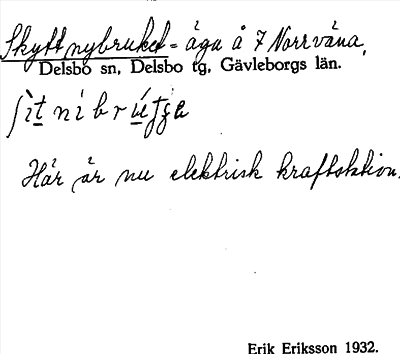 Skyttnybruket = äga å 7 Norrväna,
Delsbo sn, Delsbo tg, Gävleborgs län.
Här är nu elektrisk kraftstation.
Erik Eriksson 1932.